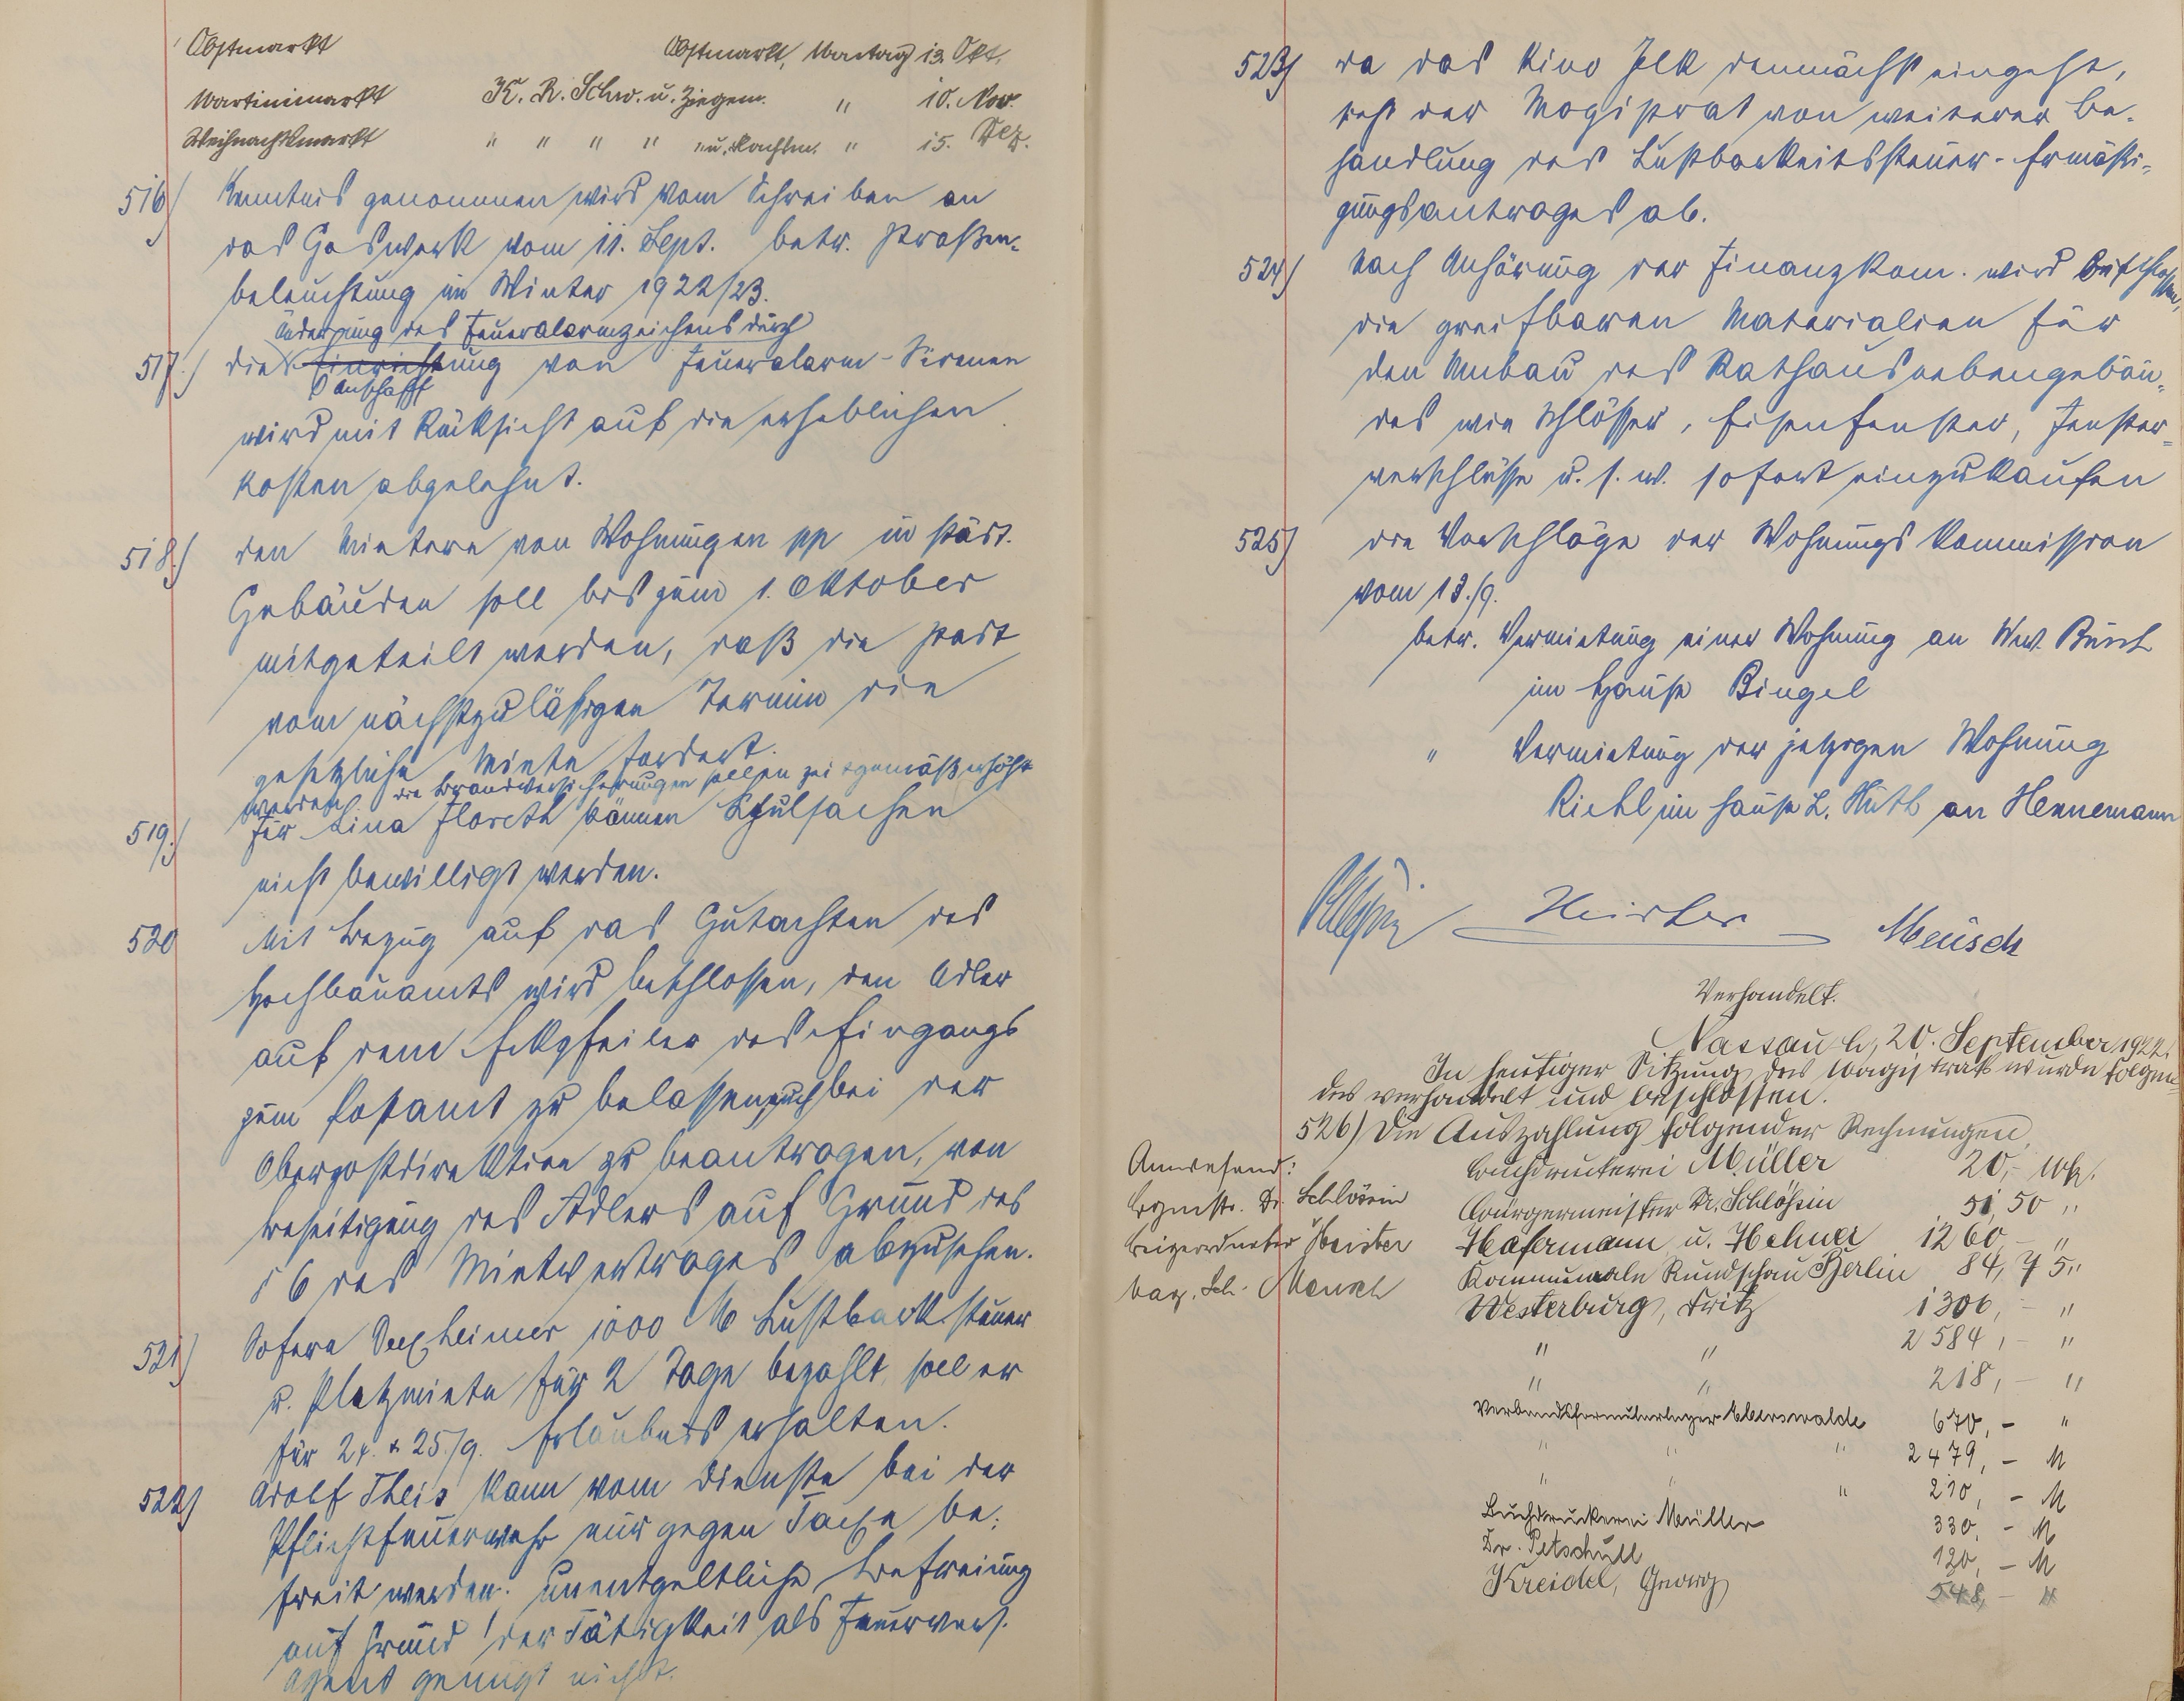 Obstmarkt Obstmarkt, Montag 13. Okt.
Martinimarkt K. R. Schw. u. Ziegem. " 10. Nov.
Weihnachtsmarkt " " " " " u. " 15. Dez.
516) Kenntnis genommen wird vom Schreiben an
das Gaswerk vom 11. Sept. betr. Straßen-
beleuchtung im Winter 1922/23.
Änderung des Feueralarmzeichens durch
517.) die Einrichtung von Feueralarm-Sirenen
Anschaff
wird mit Rücksicht auf die erheblichen
Kosten abgelehnt.
518.) den Mietern von Wohnungen pp in städt.
Gebäuden soll bis zum 1. Oktober
mitgeteilt werden, daß die Stadt
vom nächstzulässigen Termin die
gesetzliche Miete fordert.
die Brandversicherungen sollen zeitgemäß erhöht
werden.
519.) für Lina können Schulsachen
nicht bewilligt werden.
520 Mit Bezug auf das Gutachten des
Hochbauamts wird beschlossen, den Adler
auf dem Eckpfeiler des Eingangs
zum Postamt zu belassen, auch bei der
Oberpostdirektion zu beantragen, von
Beseitigung des Adlers auf Grund des
§ 6 des Mietvertrages abzusehen.
521) Sofern 1000 M Lustbark.steuer
u. Platzmiete für 2 Tage bezahlt, soll er
für 24. & 25./9. Erlaubnis erhalten.
522) Adolf Theis kann vom Dienste bei der
Pflichtfeuerwehr nur gegen Taxe be-
freit werden. Unentgeltliche Befreiung
auf Grund der Tätigkeit als Feuervers.
Agent genügt nicht.
523) da das Kino demnächst eingeht,
sieht der Magistrat von weiterer Be-
handlung des Lustbarkeitssteuer-Ermäßi-
gungsantrages ab.
524) Nach Anhörung der Finanzkom. wird beschlossen,
die greifbaren Materialien für
den Umbau des Rathausnebengebäu-
des wie Schlösser, Eisenfenster, Fenster-
verschlüsse u. s. w. sofort einzukaufen
525) die Vorschläge der Wohnungskommission
vom 18./9.
betr. Vermietung einer Wohnung an Ww. Busch
im Hause Bingel
" Vermietung der jetzigen Wohnung
Riehl im Hause L. Huth an Hennemann
Heister Meusch
Verhandelt.
Nassau d. 20. September 1922.
In heutiger Sitzung des Magistrats wurde folgen-
des verhandelt und beschlossen.
526) Die Auszahlung folgender Rechnungen
Anwesend: Buchdruckerei Müller 20,- Mk.
Bgmstr. Dr. Schlösin Bürgermeister Dr. Schlösin 51,50 "
Beigeordneter Heister Hafermann u. Hehner 1260 - "
Mag. Sch. Meusch Kommunale Rundschau Berlin 84,75 "
Westerburg, Fritz 1306,- "
" " 2584,- "
" " 218,- "
Verbandsformularlager Eberswalde 670,- "
" " " 2479,- M
" " " 210,- M
Buchdruckerei Müller 330,- M
Dr. Petschull 120,- M
Kreidel, Georg 548,- M